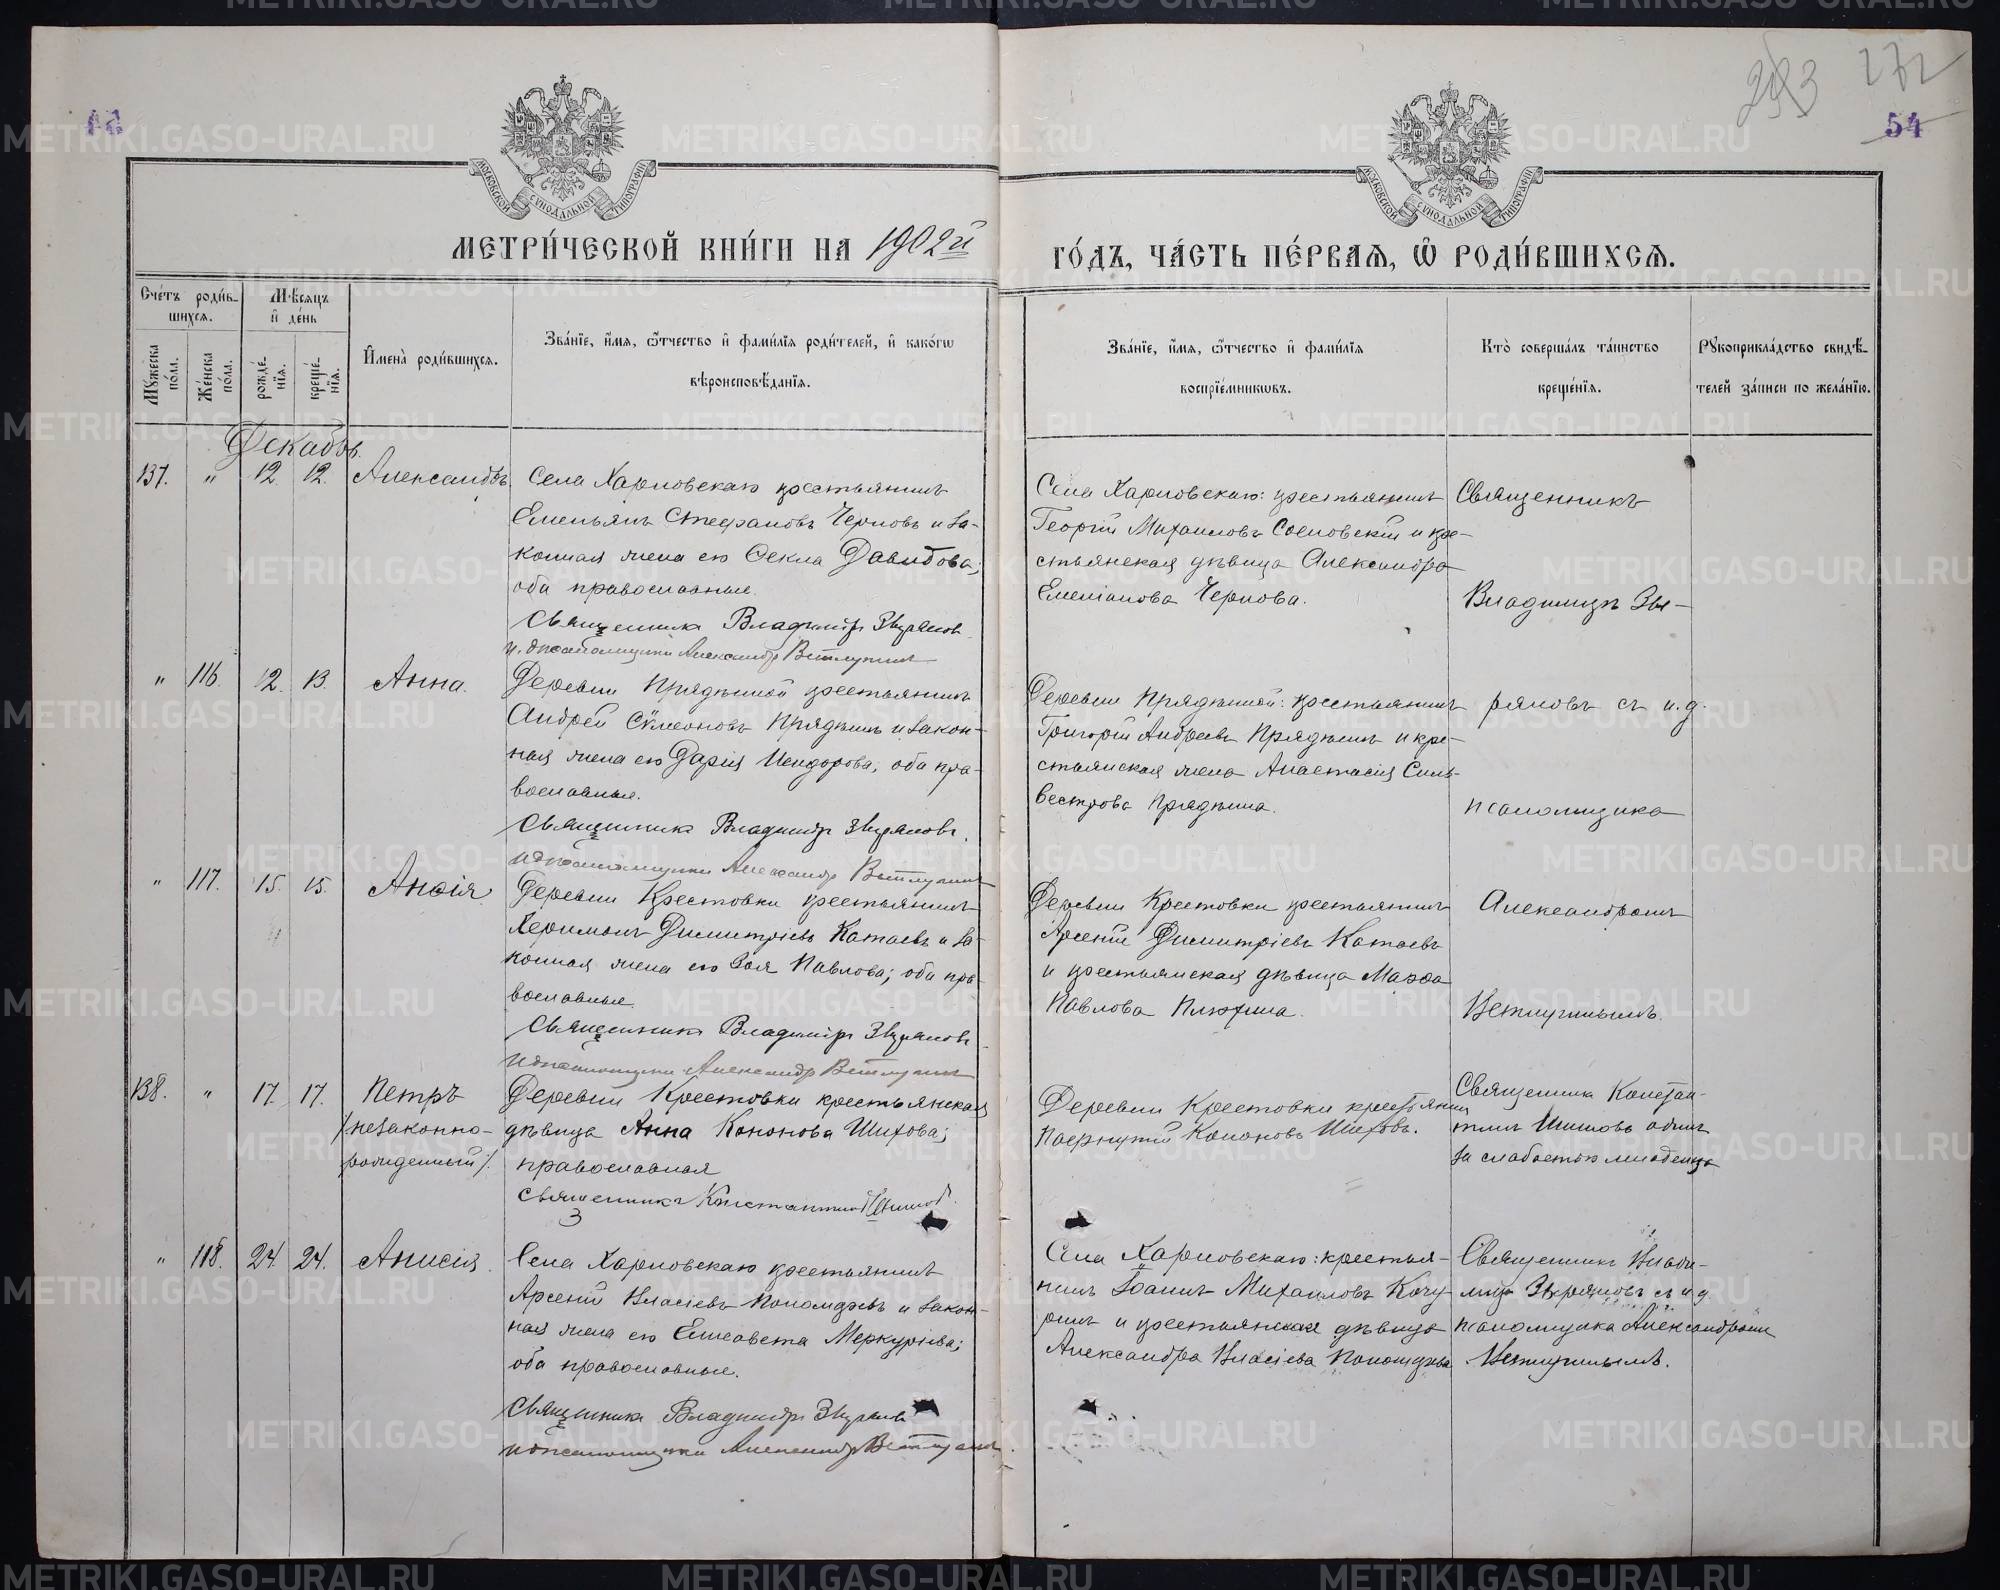 METRIKI.GASO-URAL.RU
272
54
МОСКОВСКОЙ СѴНОДАЛЬНОЙ ТИПОГРАФІИ
МОСКОВСКОЙ СѴНОДАЛЬНОЙ ТИПОГРАФІИ
МЕТРИ́ЧЕСКОЙ КНИ́ГИ НА 1902й
ГО́ДЪ, ЧА́СТЬ ПЕ́РВАѦ, Ѡ҆ РОДИ́ВШИХСѦ.
Сче́тъ роди́в-
шихсѧ.
Мꙋ́жеска по́ла.
Же́нска по́ла.
Мѣ́сяцъ
и҆ де́нь
рожде́-
нїѧ.
креще́-
нїѧ.
И҆мена̀ роди́вшихсѧ.
Зва́нїе, и҆́мѧ, ѻ҆́тчество и҆ фами́лїѧ роди́телей, и҆ како́гѡ
вѣроисповѣ́данїѧ.
Зва́нїе, и҆́мѧ, ѻ҆́тчество и҆ фами́лїѧ
воспрїе́мникѡвъ.
Кто̀ соверша́лъ та́инство
креще́нїѧ.
Рꙋкоприкла́дство свидѣ́-
телей за́писи по жела́нїю.
Декабрь.
137. " 12. 12. Александръ
Села Харловскаго крестьянинъ
Емельянъ Стефановъ Черновъ и за-
конная жена его Ѳекла Давидова;
оба православные.
Священникъ Владиміръ Звѣряновъ
и.д псаломщика Александръ Ветлугинъ
Села Харловскаго: крестьянинъ
Георгій Михаиловъ Сосновскій и кре-
стьянская дѣвица Александра
Емеліанова Чернова.
Священникъ
Владиміръ Звѣ-
" 116. 12. 13. Анна.
Деревни Прядѣиной крестьянинъ
Андрей Сѵмеоновъ Прядѣинъ и закон-
ная жена его Дарія Исидорова, оба пра-
вославные.
Священникъ Владиміръ Звѣряновъ.
и д псаломщика Александръ Ветлугинъ
Деревни Прядѣиной: крестьянинъ
Григорій Андреевъ Прядѣинъ и кре-
стьянская жена Анастасія Силь-
вестрова Прядѣина.
ряновъ съ и.д.
псаломщика
" 117. 15. 15. Анѳія
Деревни Крестовки крестьянинъ
Димитріевъ Катаевъ и за-
конная жена его Зоя Павлова; оба пра-
вославные
Священникъ Владиміръ Звѣряновъ
и д псаломщика Александръ Ветлугинъ
Деревни Крестовки крестьянинъ
Арсеній Димитріевъ Катаевъ
и крестьянская дѣвица Марѳа
Павлова Плюхина.
Александромъ
Ветлугинымъ.
138. " 17. 17. Петръ
/незаконно-
рожденный/.
Деревни Крестовки крестьянская
дѣвица Анна Кононова Шихова;
православная
Священникъ Константинъ Шишовъ.
Деревни Крестовки крестьянинъ
Кононовъ Шиховъ.
Священникъ Констан-
тинъ Шишовъ одинъ
за слабостью младенца
" 118. 24. 24. Анисія.
Села Харловскаго крестьянинъ
Арсеній Власіевъ Пономаревъ и закон-
ная жена его Елисавета Меркуріева;
оба православные.
Священникъ Владиміръ Звѣряновъ
и д псаломщика Александръ Ветлугинъ.
Села Харловскаго: крестья-
нинъ Іоаннъ Михаиловъ Кочу-
ринъ и крестьянская дѣвица
Александра Власіева Пономарева
Священникъ Влади-
міръ Звѣряновъ съ и.д.
псаломщика Александромъ
Ветлугинымъ.